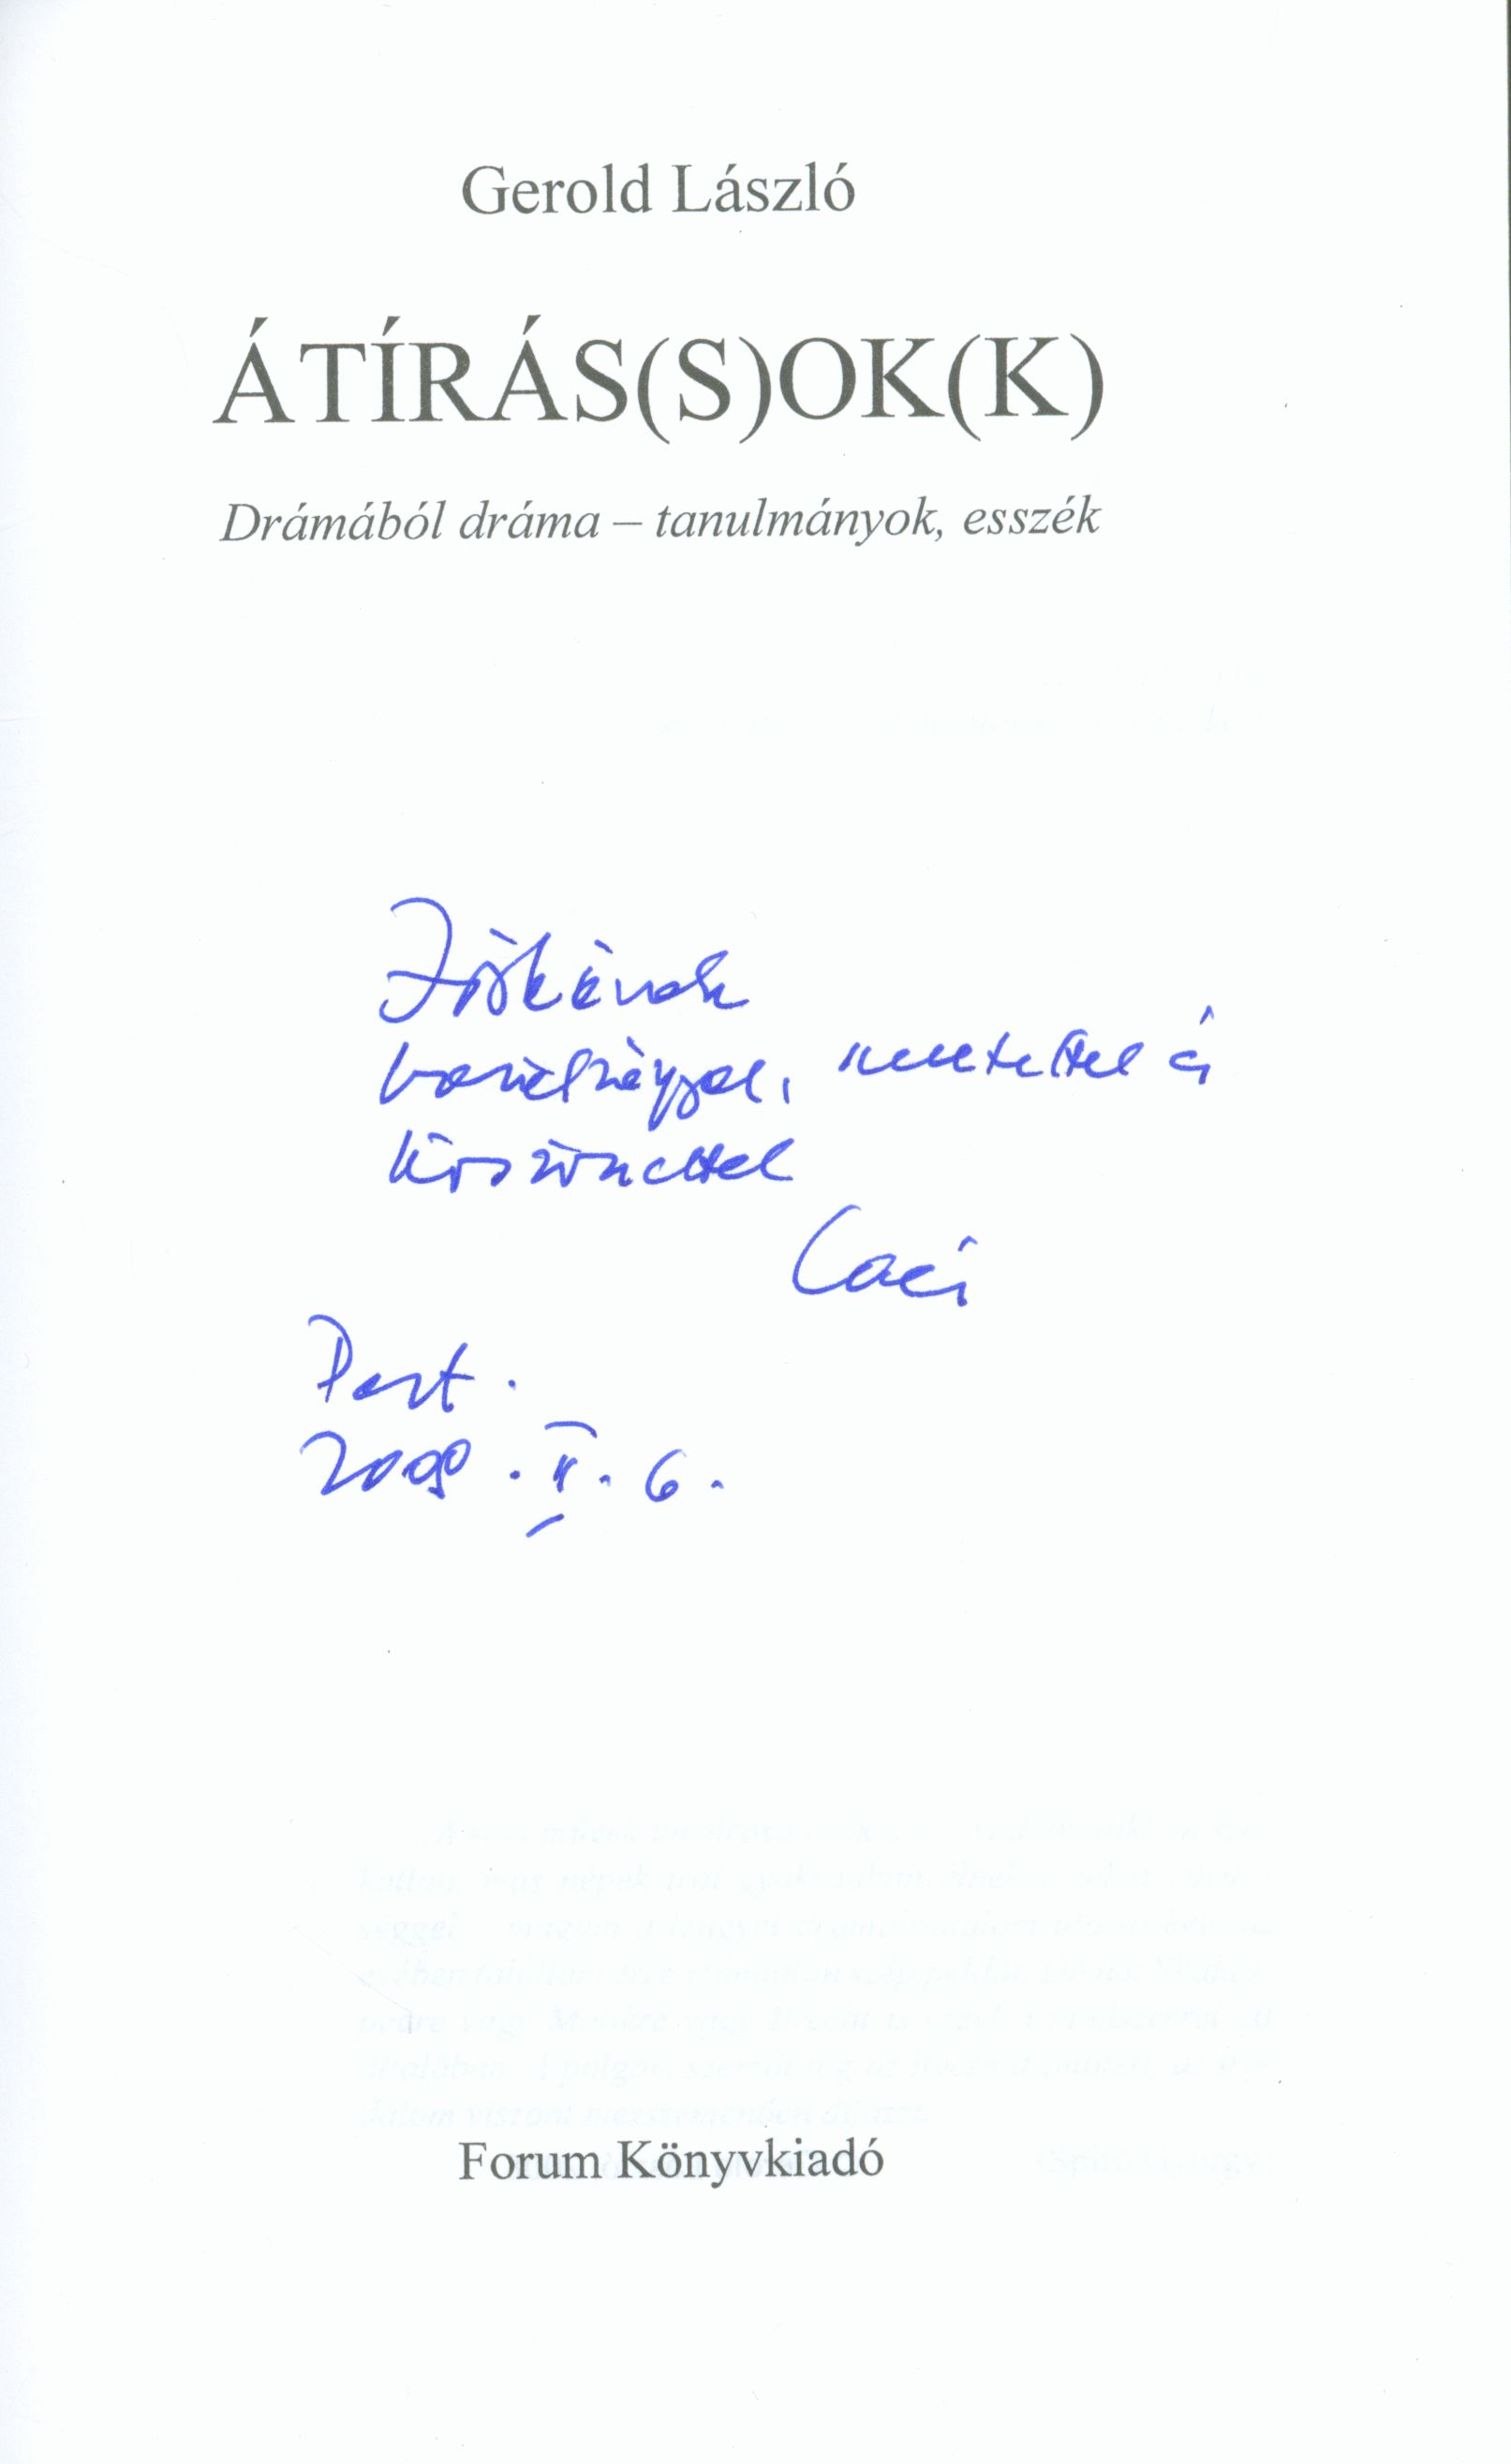 Gerold László
ÁTÍRÁS(S)OK(K)
Drámából dráma – tanulmányok, esszék
barátsággal, szeretettel és
köszönettel
Laci
Pest.
6.
Forum Könyvkiadó